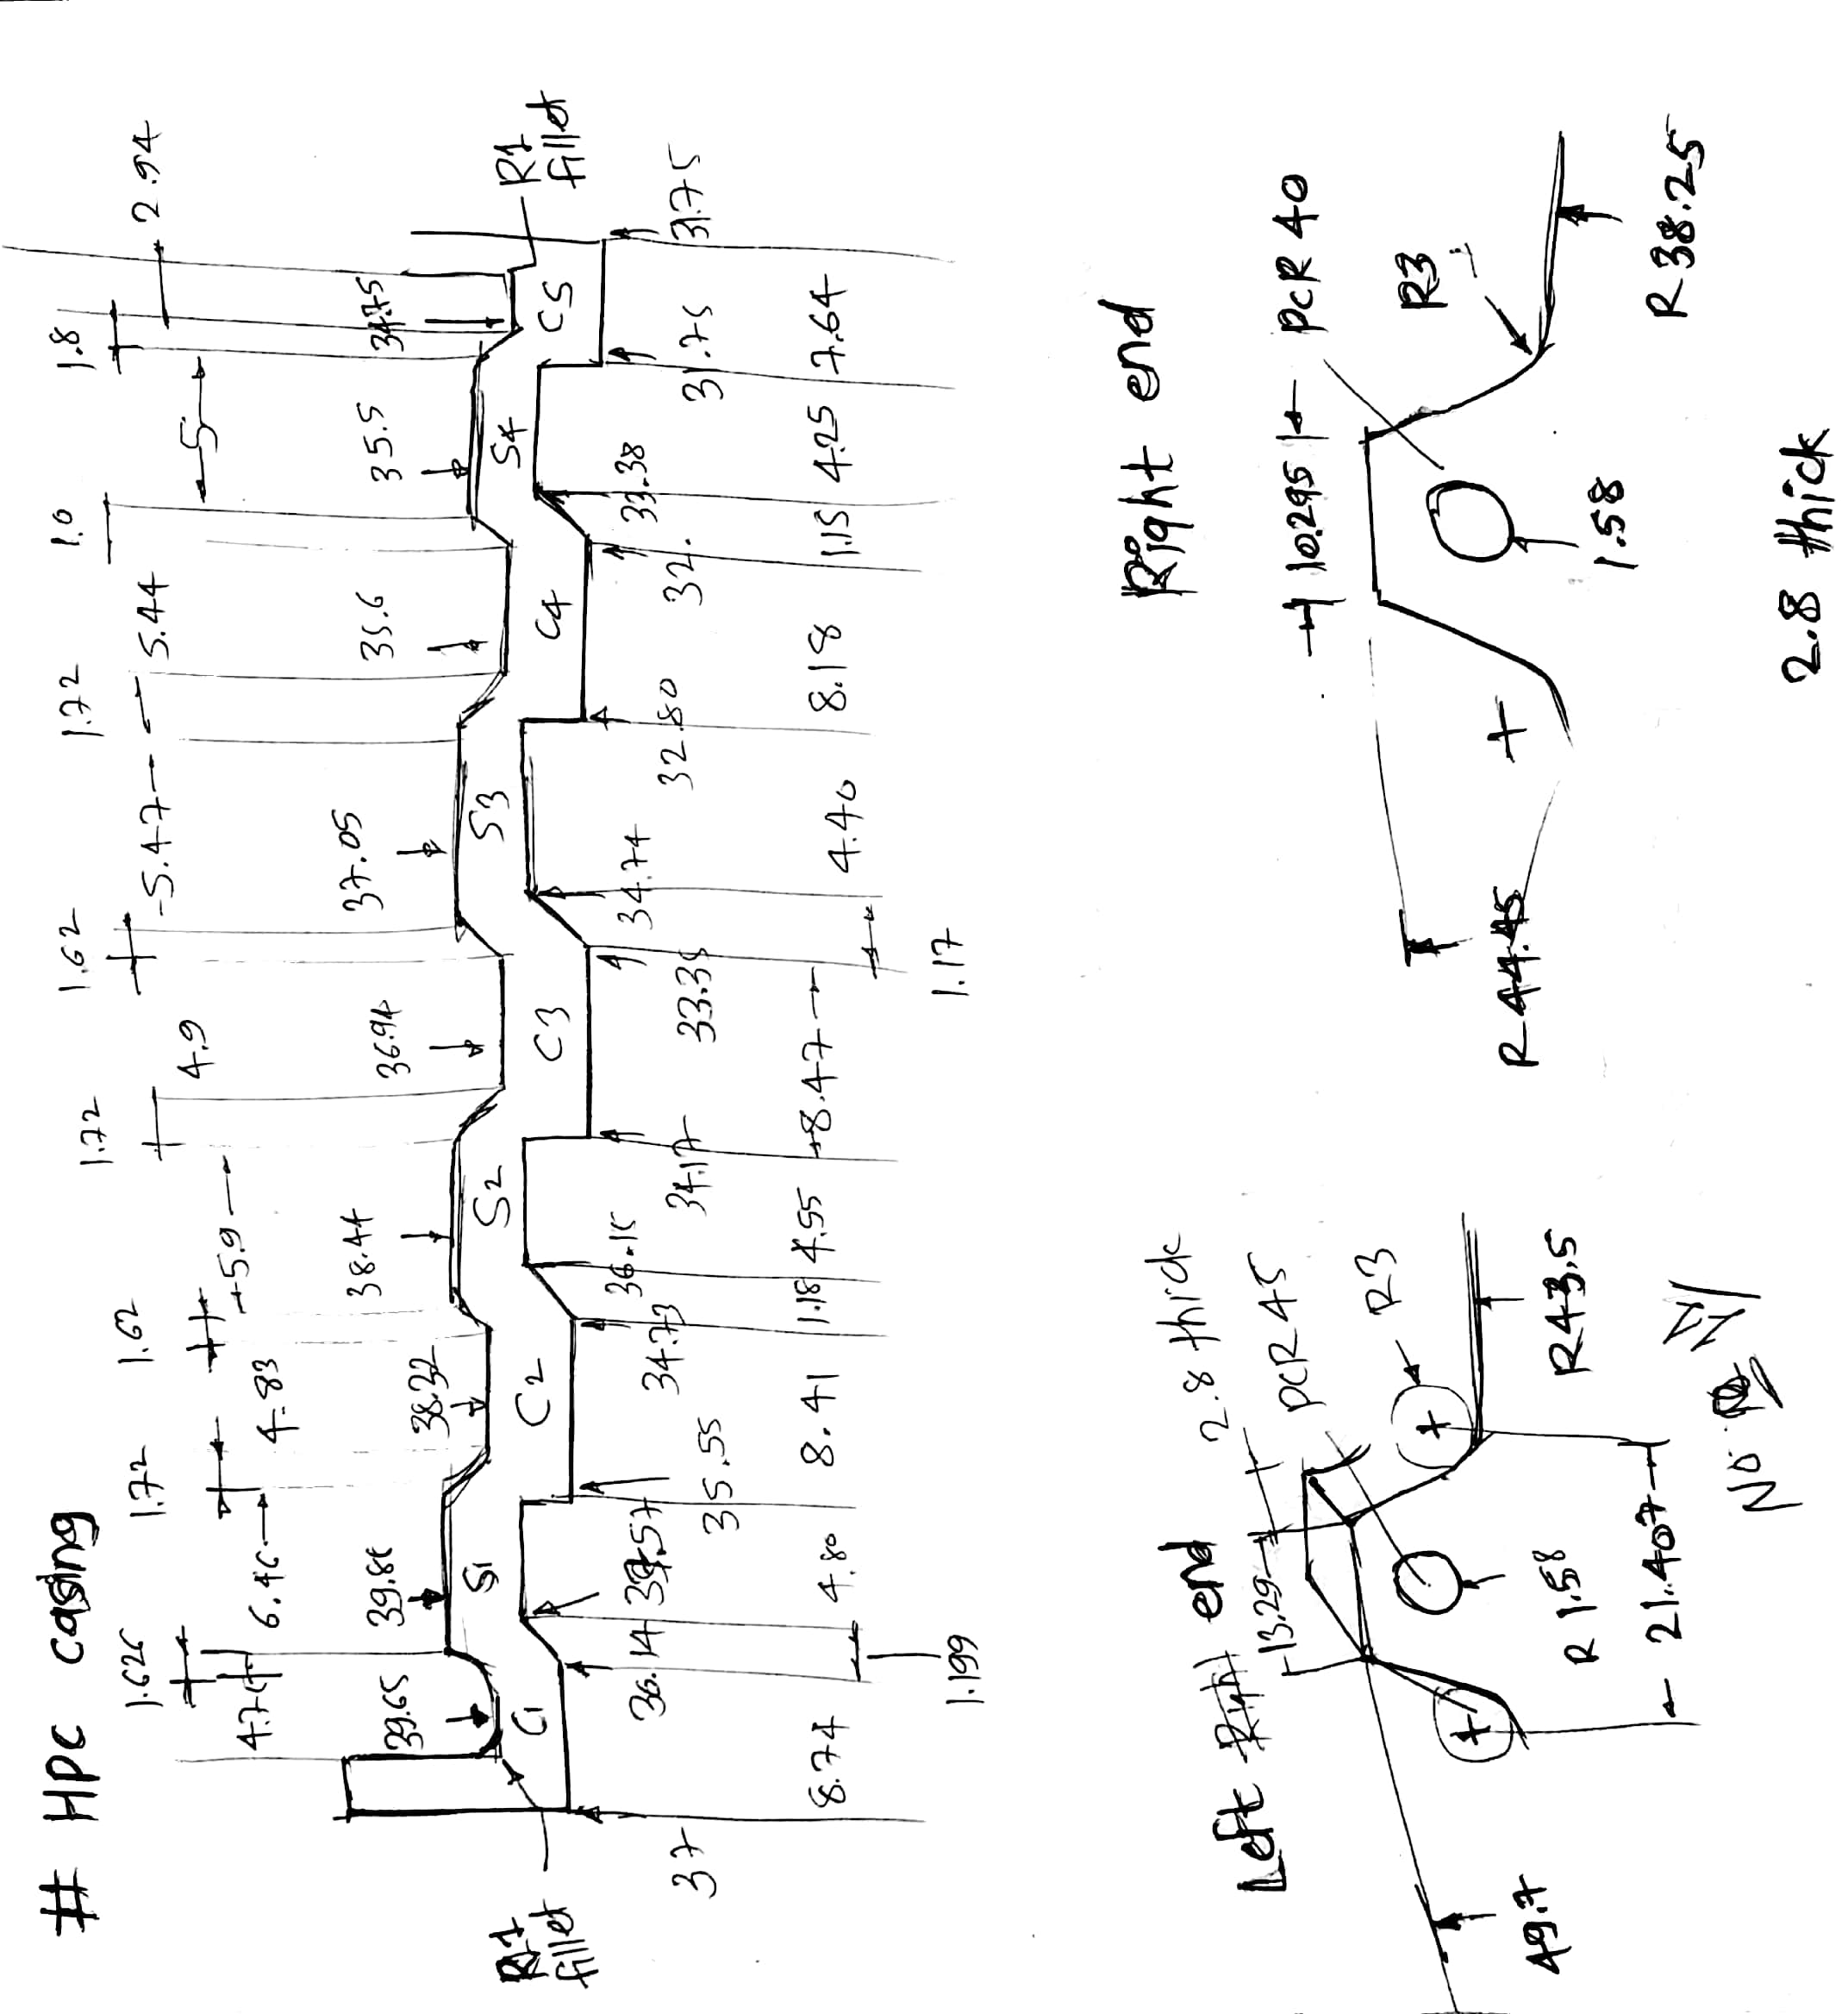 # HPC casing
1.626
1.72
1.62
1.72
1.62
1.72
1.6
1.8
4.83
5.9
4.9
5.47
5.44
5
2.94
39.65
38.32
38.44
36.94
37.05
35.6
35.5
34.75
C1
S1
C2
S2
C3
S3
C4
S4
C5
R1
fillet
R1
fillet
37
36.14
35.55
34.73
36.15
34.17
34.74
32.80
32.
33.38
31.75
31.75
8.74
4.80
8.41
1.18
4.55
8.47
4.40
8.18
1.15
4.25
7.64
1.199
1.17
Left
end
2.8 thick
13.29
PCR 45
R3
49.7
R 1.58
R43.5
21.407
No
Right end
10.295
PCR 40
R3
R44.45
1.58
R38.25
2.8 thick